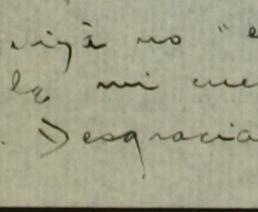 no "e
la mi me
. Desgracia